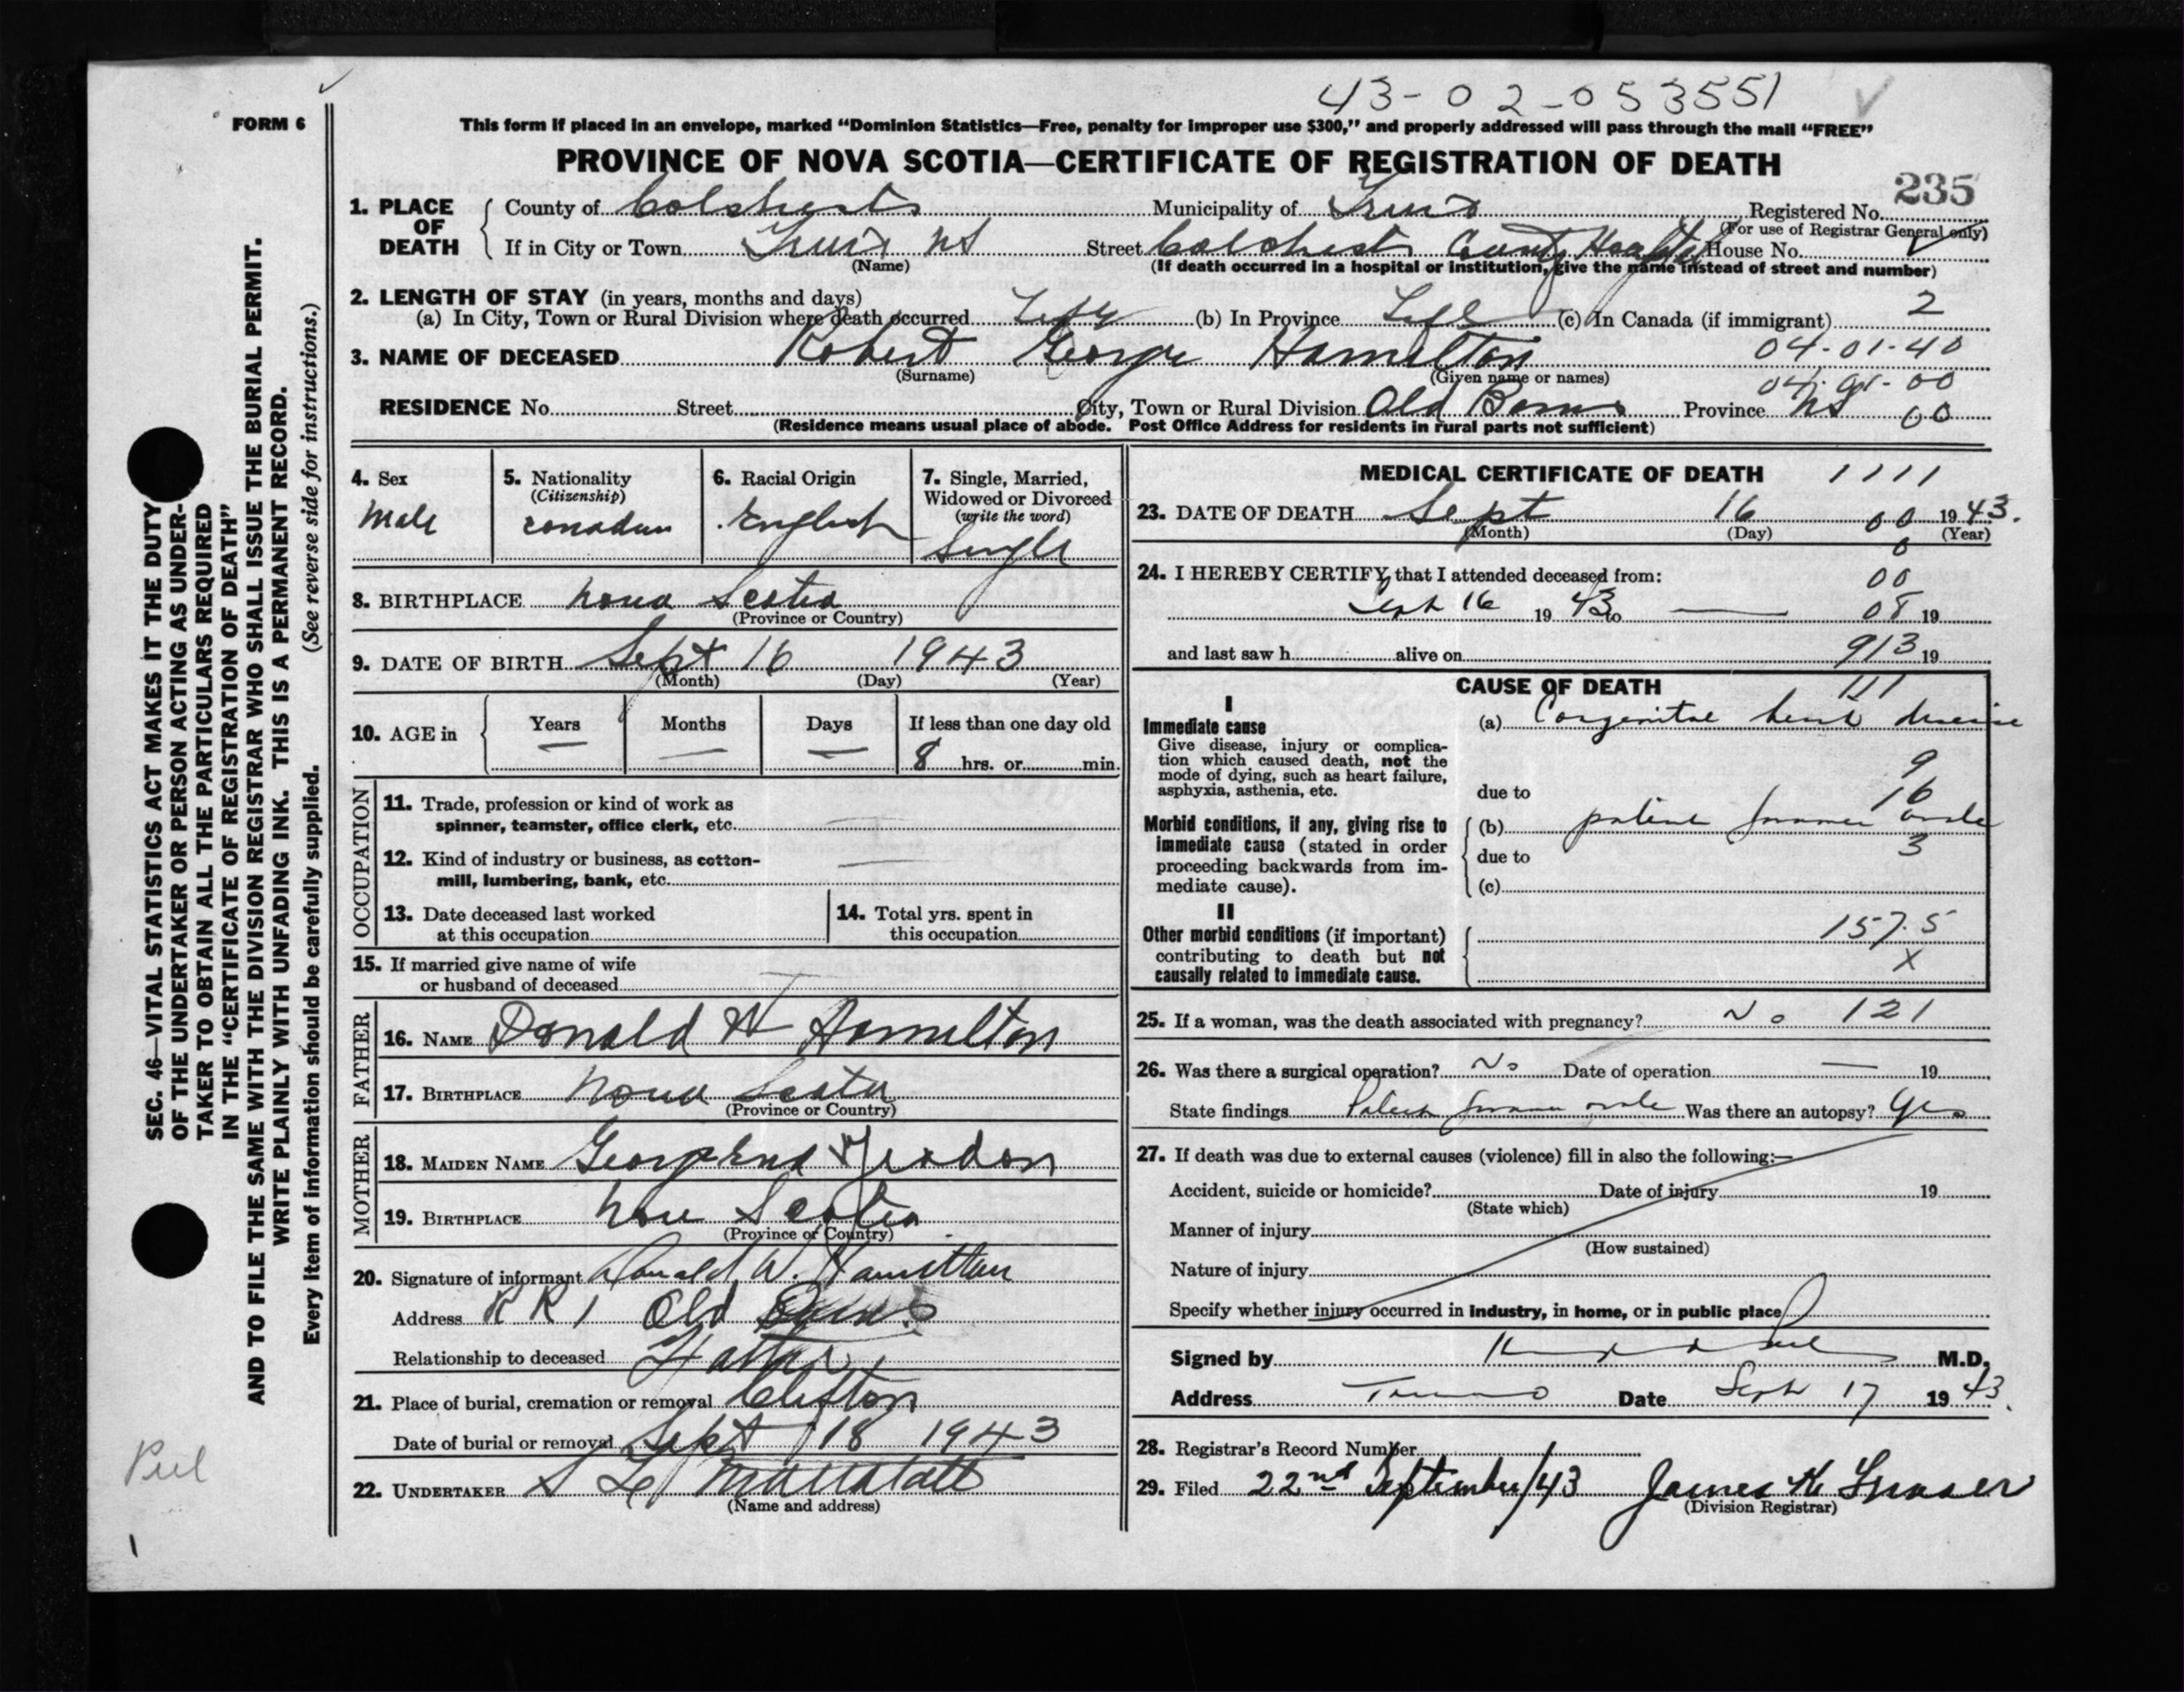 43-02-053551
FORM 6
This form if placed in an envelope, marked “Dominion Statistics—Free, penalty for improper use $300,” and properly addressed will pass through the mail “FREE”
PROVINCE OF NOVA SCOTIA—CERTIFICATE OF REGISTRATION OF DEATH
235
1. PLACE OF DEATH County of Colchester Municipality of Truro Registered No.
(For use of Registrar General only)
If in City or Town Truro NS Street Colchester County Hospital House No.
(Name) (If death occurred in a hospital or institution, give the name instead of street and number)
2. LENGTH OF STAY (in years, months and days) 2
(a) In City, Town or Rural Division where death occurred Life (b) In Province Life (c) In Canada (if immigrant)
3. NAME OF DECEASED Robert George Hamilton 04-01-40
(Surname) (Given name or names)
RESIDENCE No. Street City, Town or Rural Division Old Barns Province NS 00
(Residence means usual place of abode. Post Office Address for residents in rural parts not sufficient)
4. Sex
Male
5. Nationality
(Citizenship)
Canadian
6. Racial Origin
English
7. Single, Married,
Widowed or Divorced
(write the word)
Single
8. BIRTHPLACE Nova Scotia
(Province or Country)
9. DATE OF BIRTH Sept 16 1943
(Month) (Day) (Year)
10. AGE in Years Months Days If less than one day old
— — — 8 hrs. or min.
OCCUPATION
11. Trade, profession or kind of work as
spinner, teamster, office clerk, etc.
12. Kind of industry or business, as cotton-
mill, lumbering, bank, etc.
13. Date deceased last worked
at this occupation
14. Total yrs. spent in
this occupation
15. If married give name of wife
or husband of deceased
FATHER
16. NAME Donald W Hamilton
17. BIRTHPLACE Nova Scotia
(Province or Country)
MOTHER
18. MAIDEN NAME
19. BIRTHPLACE Nova Scotia
(Province or Country)
20. Signature of informant Donald W. Hamilton
Address R R 1 Old Barns
Relationship to deceased Father
21. Place of burial, cremation or removal Clifton
Date of burial or removal Sept 18 1943
22. UNDERTAKER
(Name and address)
MEDICAL CERTIFICATE OF DEATH 1111
23. DATE OF DEATH Sept 16 00 1943.
(Month) (Day) (Year)
0
24. I HEREBY CERTIFY, that I attended deceased from: 00
Sept 16 1943 to — 08 19
and last saw h alive on 913 19
CAUSE OF DEATH 111
I
Immediate cause
Give disease, injury or complica-
tion which caused death, not the
mode of dying, such as heart failure,
asphyxia, asthenia, etc.
(a) Congenital heart disease
9
due to 16
Morbid conditions, if any, giving rise to
immediate cause (stated in order
proceeding backwards from im-
mediate cause).
(b) patent foramen ovale
due to 3
(c)
II
Other morbid conditions (if important)
contributing to death but not
causally related to immediate cause.
157.5
X
25. If a woman, was the death associated with pregnancy? No 121
26. Was there a surgical operation? No Date of operation — 19
State findings Patent foramen ovale Was there an autopsy? Yes
27. If death was due to external causes (violence) fill in also the following:—
Accident, suicide or homicide? Date of injury 19
(State which)
Manner of injury
(How sustained)
Nature of injury
Specify whether injury occurred in industry, in home, or in public place
Signed by M.D.
Address Truro Date Sept 17 1943.
28. Registrar's Record Number
29. Filed 22nd September/43 James K Fraser
(Division Registrar)
SEC. 46—VITAL STATISTICS ACT MAKES IT THE DUTY
OF THE UNDERTAKER OR PERSON ACTING AS UNDER-
TAKER TO OBTAIN ALL THE PARTICULARS REQUIRED
IN THE “CERTIFICATE OF REGISTRATION OF DEATH”
AND TO FILE THE SAME WITH THE DIVISION REGISTRAR WHO SHALL ISSUE THE BURIAL PERMIT.
WRITE PLAINLY WITH UNFADING INK. THIS IS A PERMANENT RECORD.
Every item of information should be carefully supplied. (See reverse side for instructions.)